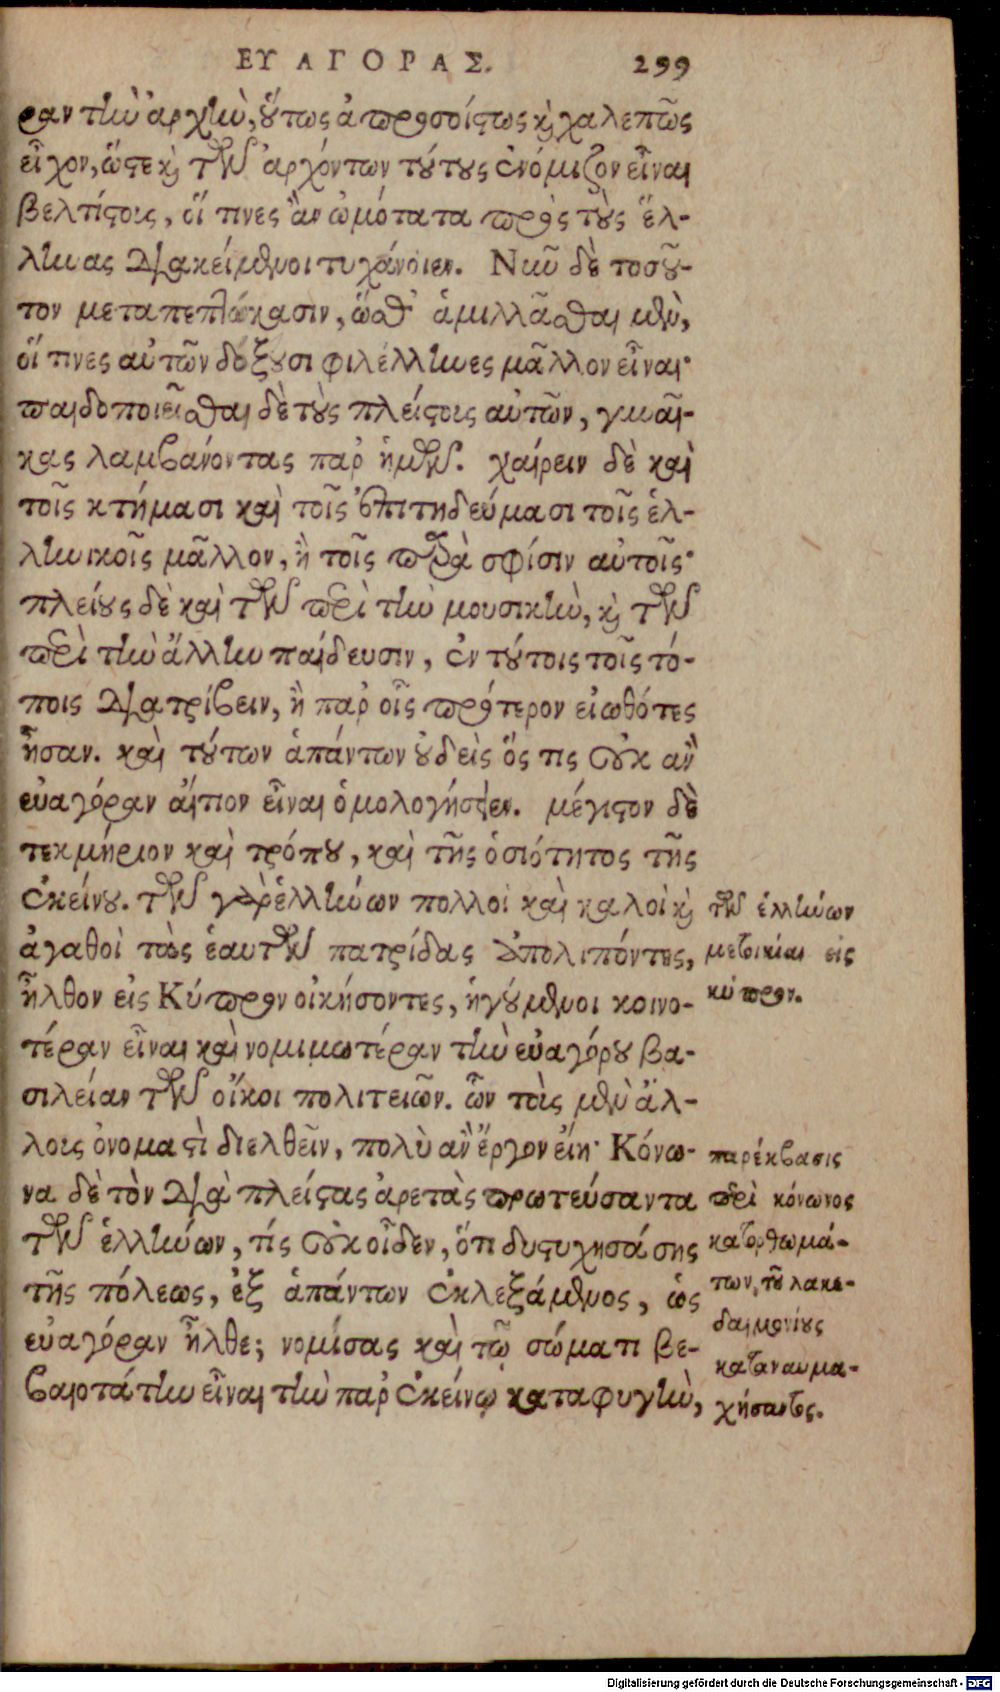 ΕΥΑΓΟΡΑΣ. 299
ραν τὴν ἀρχὴν, οὕτως ἀπροσοίστως καὶ χαλεπῶς
εἶχον, ὥστε καὶ τῶν ἀρχόντων τούτους ἐνόμιζον εἶναι
βελτίστοις, οἵ τινες ἂν ὠμότατα πρὸς τοὺς ἕλ-
ληνας διακείμενοι τυγχάνοιεν. Νῦν δὲ τοσοῦ-
τον μεταπεπλώκασιν, ὥσθ' ἁμιλλᾶσθαι μὲν,
οἵ τινες αὐτῶν δόξουσι φιλέλληνες μᾶλλον εἶναι·
παιδοποιεῖσθαι δὲ τοὺς πλείστοις αὐτῶν, γυναῖ-
κας λαμβάνοντας παρ' ἡμῶν. χαίρειν δὲ καὶ
τοῖς κτήμασι καὶ τοῖς ἐπιτηδεύμασι τοῖς ἑλ-
ληνικοῖς μᾶλλον, ἢ τοῖς παρὰ σφίσιν αὐτοῖς·
πλείους δὲ καὶ τῶν περὶ τὴν μουσικὴν, καὶ τῶν
περὶ τὴν ἄλλην παίδευσιν, ἐν τούτοις τοῖς τό-
ποις διατρίβειν, ἢ παρ' οἷς πρότερον εἰωθότες
ἦσαν. καὶ τούτων ἁπάντων οὐδεὶς ὅς τις οὐκ ἂν
εὐαγόραν αἴτιον εἶναι ὁμολογήσειεν. μέγιστον δὲ
τεκμήριον καὶ τρόπου, καὶ τῆς ὁσιότητος τῆς
ἐκείνου. τῶν γὰρ ἑλλήνων πολλοὶ καὶ καλοὶ καὶ
ἀγαθοὶ τὰς ἑαυτῶν πατρίδας ἀπολιπόντες,
ἦλθον εἰς Κύπρον οἰκήσοντες, ἡγούμενοι κοινο-
τέραν εἶναι καὶ νομιμωτέραν τὴν εὐαγόρου βα-
σιλείαν τῶν οἴκοι πολιτειῶν. ὧν τοὶς μὲν ἄλ-
λοις ὀνομαστὶ διελθεῖν, πολὺ ἂν ἔργον εἴη· Κόνω-
να δὲ τὸν διὰ πλείστας ἀρετὰς πρωτεύσαντα
τῶν ἑλλήνων, τίς οὐκ οἶδεν, ὅτι δυστυχησάσης
τῆς πόλεως, ἐξ ἁπάντων ἐκλεξάμενος, ὡς
εὐαγόραν ἦλθε; νομίσας καὶ τῷ σώματι βε-
βαιοτάτην εἶναι τὴν παρ' ἐκείνῳ καταφυγὴν,
τῶν ἑλλήνων
μετοικίαι εἰς
κύπρον.
παρέκβασις
περὶ κόνωνος
κατορθωμά-
των, τοῦ λακε-
δαιμονίους
καταναυμα-
χήσαντος.
Digitalisierung gefördert durch die Deutsche Forschungsgemeinschaft - DFG